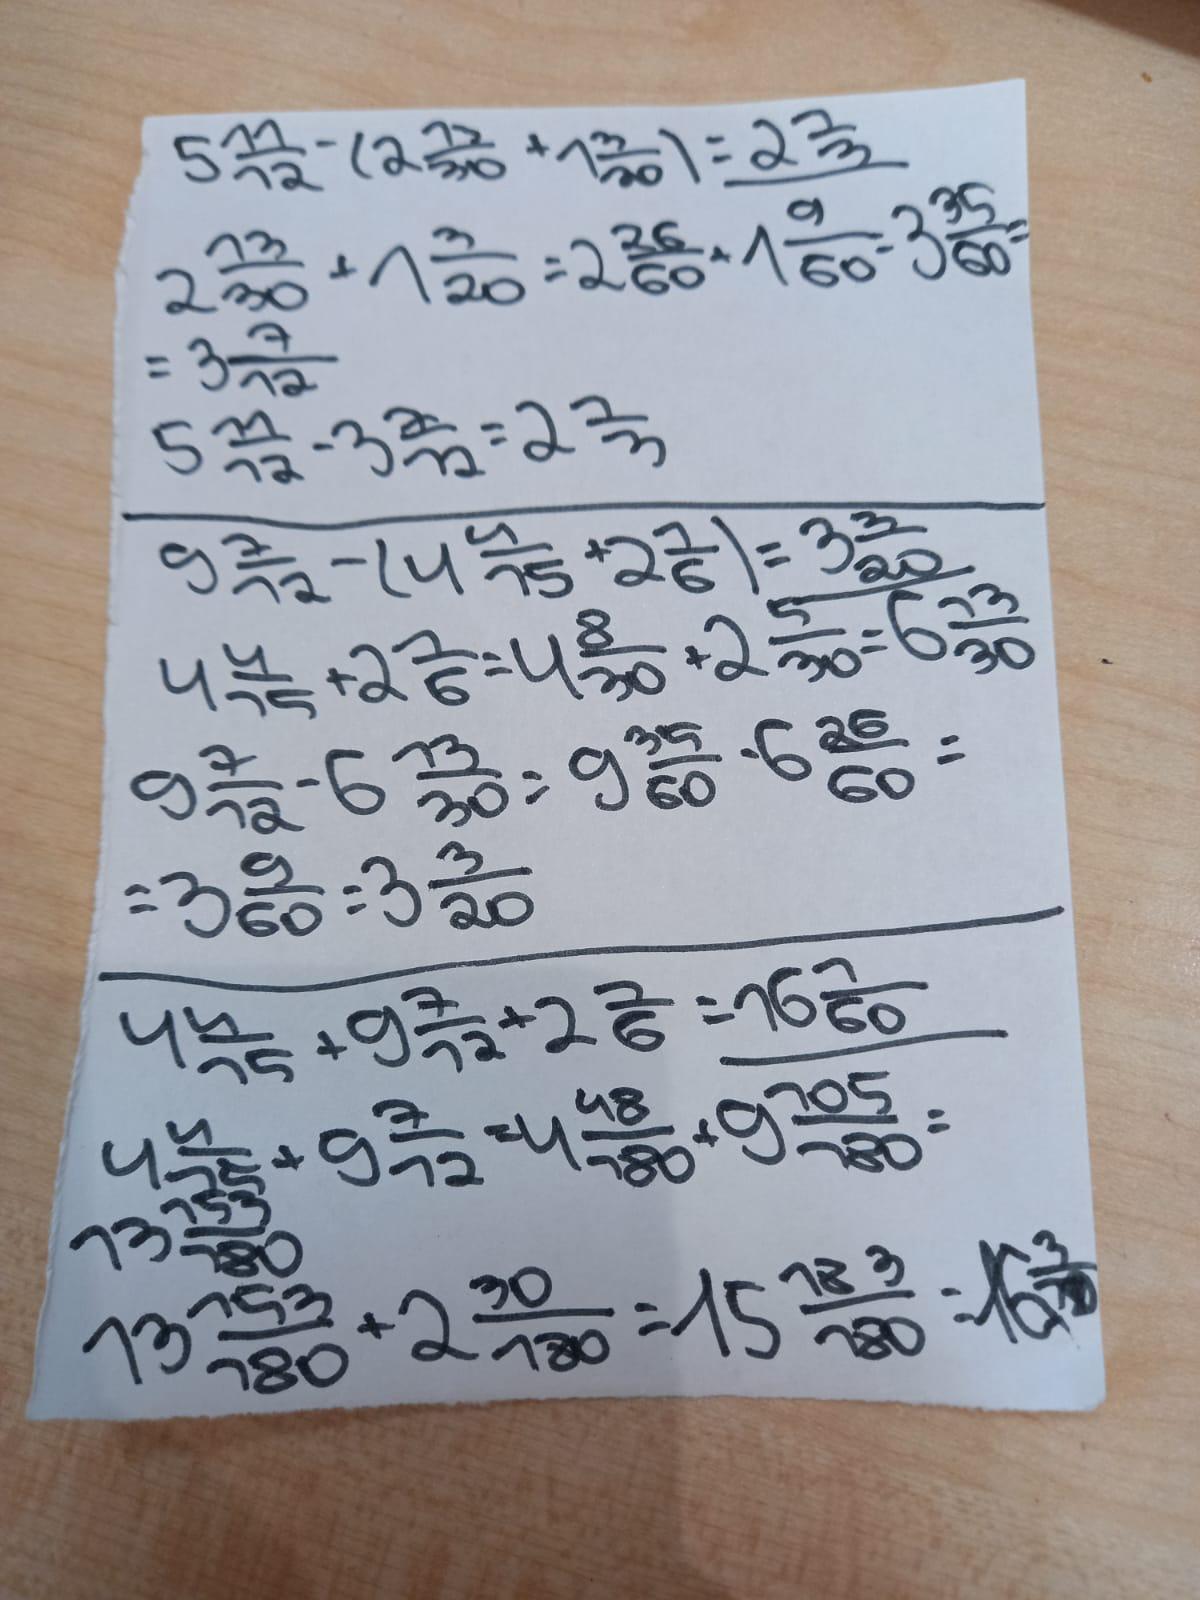 5 11/12 - (2 13/30 + 1 3/20) = 2 1/3
2 13/30 + 1 3/20 = 2 26/60 + 1 9/60 = 3 35/60 =
= 3 7/12
5 11/12 - 3 7/12 = 2 1/3
9 7/12 - (4 4/15 + 2 1/6) = 3 3/20
4 4/15 + 2 1/6 = 4 8/30 + 2 5/30 = 6 13/30
9 7/12 - 6 13/30 = 9 35/60 - 6 26/60 =
= 3 9/60 = 3 3/20
4 4/15 + 9 7/12 + 2 1/6 = 16 1/60
4 4/15 + 9 7/12 = 4 48/180 + 9 105/180 =
13 153/180
13 153/180 + 2 30/180 = 15 183/180 = 16